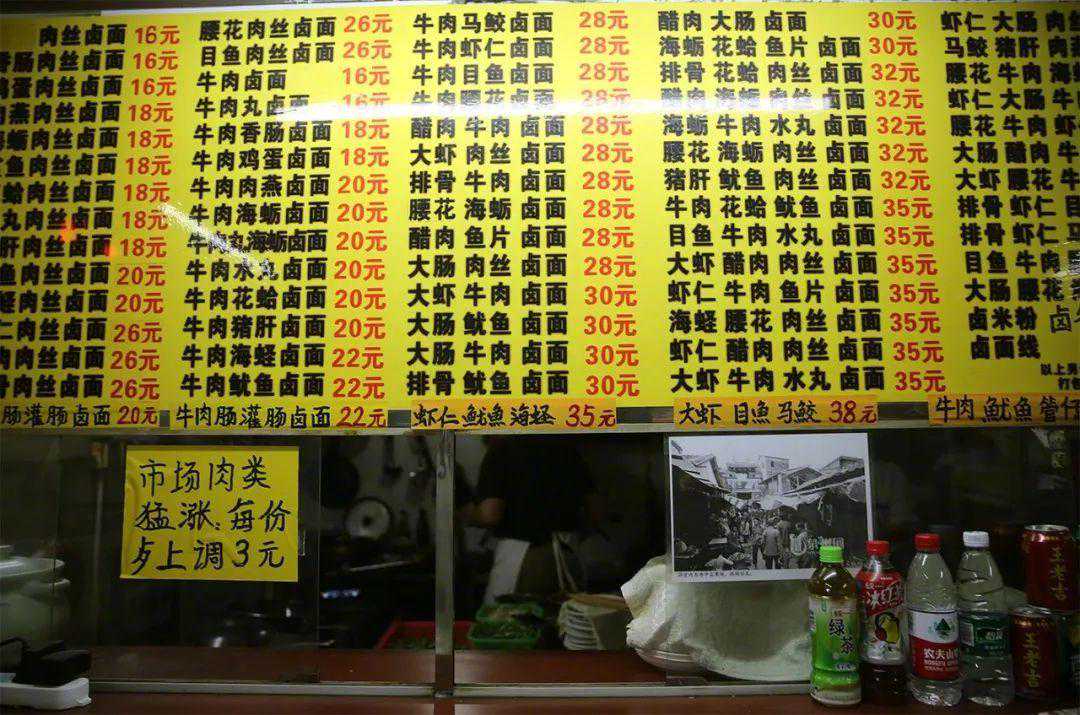 肉丝卤面 16元
香肠肉丝卤面 16元
鸡蛋肉丝卤面 16元
肉燕肉丝卤面 18元
海蛎肉丝卤面 18元
鱼肉丝卤面 18元
蛤肉丝卤面 18元
丸肉丝卤面 18元
肝肉丝卤面 18元
鱼肉丝卤面 20元
蛏肉丝卤面 20元
仁肉丝卤面 26元
肉肉丝卤面 26元
骨肉丝卤面 26元
肠灌肠卤面 20元
腰花肉丝卤面 26元
目鱼肉丝卤面 26元
牛肉卤面 16元
牛肉丸卤面 16元
牛肉香肠卤面 18元
牛肉鸡蛋卤面 18元
牛肉肉燕卤面 20元
牛肉海蛎卤面 20元
牛肉丸海蛎卤面 20元
牛肉水丸卤面 20元
牛肉花蛤卤面 20元
牛肉猪肝卤面 20元
牛肉海蛏卤面 22元
牛肉鱿鱼卤面 22元
牛肉肠灌肠卤面 22元
牛肉马鲛卤面 28元
牛肉虾仁卤面 28元
牛肉目鱼卤面 28元
牛肉腰花卤面 28元
醋肉牛肉卤面 28元
大虾肉丝卤面 28元
排骨牛肉卤面 28元
腰花海蛎卤面 28元
醋肉鱼片卤面 28元
大肠肉丝卤面 28元
大虾牛肉卤面 30元
大肠鱿鱼卤面 30元
大肠牛肉卤面 30元
排骨鱿鱼卤面 30元
虾仁鱿魚海蛏 35元
醋肉大肠卤面 30元
海蛎花蛤鱼片卤面 30元
排骨花蛤肉丝卤面 32元
醋肉海蛎肉丝卤面 32元
海蛎牛肉水丸卤面 32元
腰花海蛎肉丝卤面 32元
猪肝鱿鱼肉丝卤面 32元
牛肉花蛤鱿鱼卤面 35元
目鱼牛肉水丸卤面 35元
大虾醋肉肉丝卤面 35元
虾仁牛肉鱼片卤面 35元
海蛏腰花肉丝卤面 35元
虾仁醋肉肉丝卤面 35元
大虾牛肉水丸卤面 35元
大虾目魚马鲛 38元
虾仁大肠肉
马鲛猪肝肉
腰花牛肉海
虾仁大肠牛
腰花牛肉虾
大肠醋肉牛
大虾腰花牛
排骨虾仁目
排骨虾仁马
目鱼牛肉
大肠腰花
卤米粉 卤
卤面线
以上另
打包
牛肉鱿魚管仔
市场肉类
猛涨：每份
歺上调3元
绿茶
冰红茶
农夫山泉
王老吉
王老吉